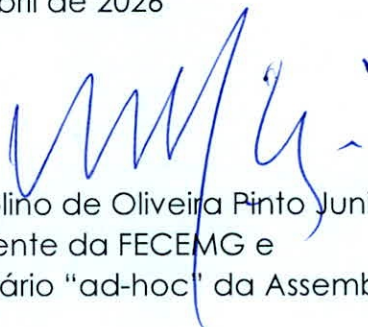 de 2026
lino de Oliveira Pinto Juni
ente da FECEMG e
ário "ad-hoc" da Assemb